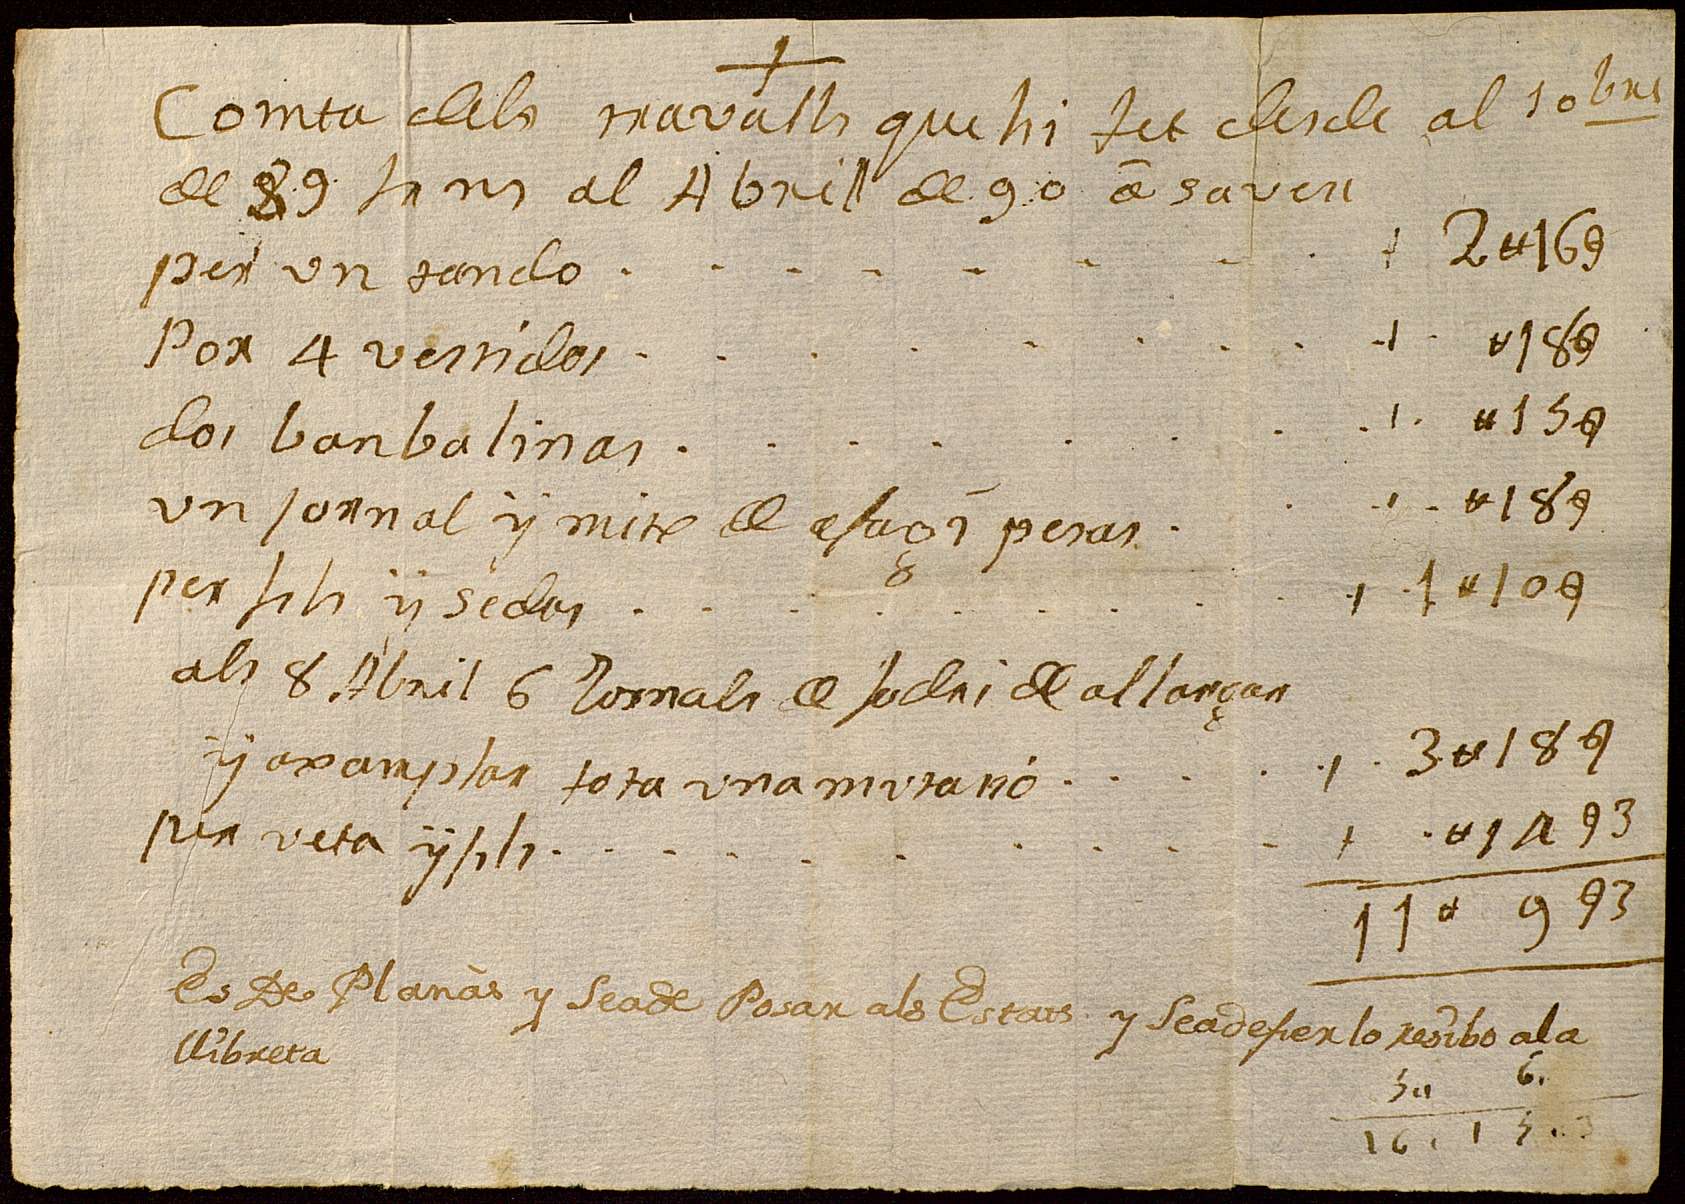 +
Comta dels travalls que hi fet desde al 10bre
de 89 fins al Abril de 90 a saver
per un tando . . . . . . . + 2 ₶ 16 ϑ
Por 4 vestidos . . . . . . . + ₶ 18 ϑ
dos banbalinas . . . . . . . + ₶ 15 ϑ
un jornal ÿ mitx de pesas . + ₶ 18 ϑ
per fils ÿ sedas . . . . . . . + 1 ₶ 10 ϑ
als 8 Abril 6 Jornals de fadri de allargar
ÿ axamplar tota una mutasió . . . . + 3 ₶ 18 ϑ
per veta ÿ fils . . . . . . . + ₶ 14 ϑ 3
11 ₶ 9 ϑ 3
Es De Planàs y Seade Posar als Estats y Seadefer lo resibo ala
llibreta
5 ₶ 6.
16. 15. 3